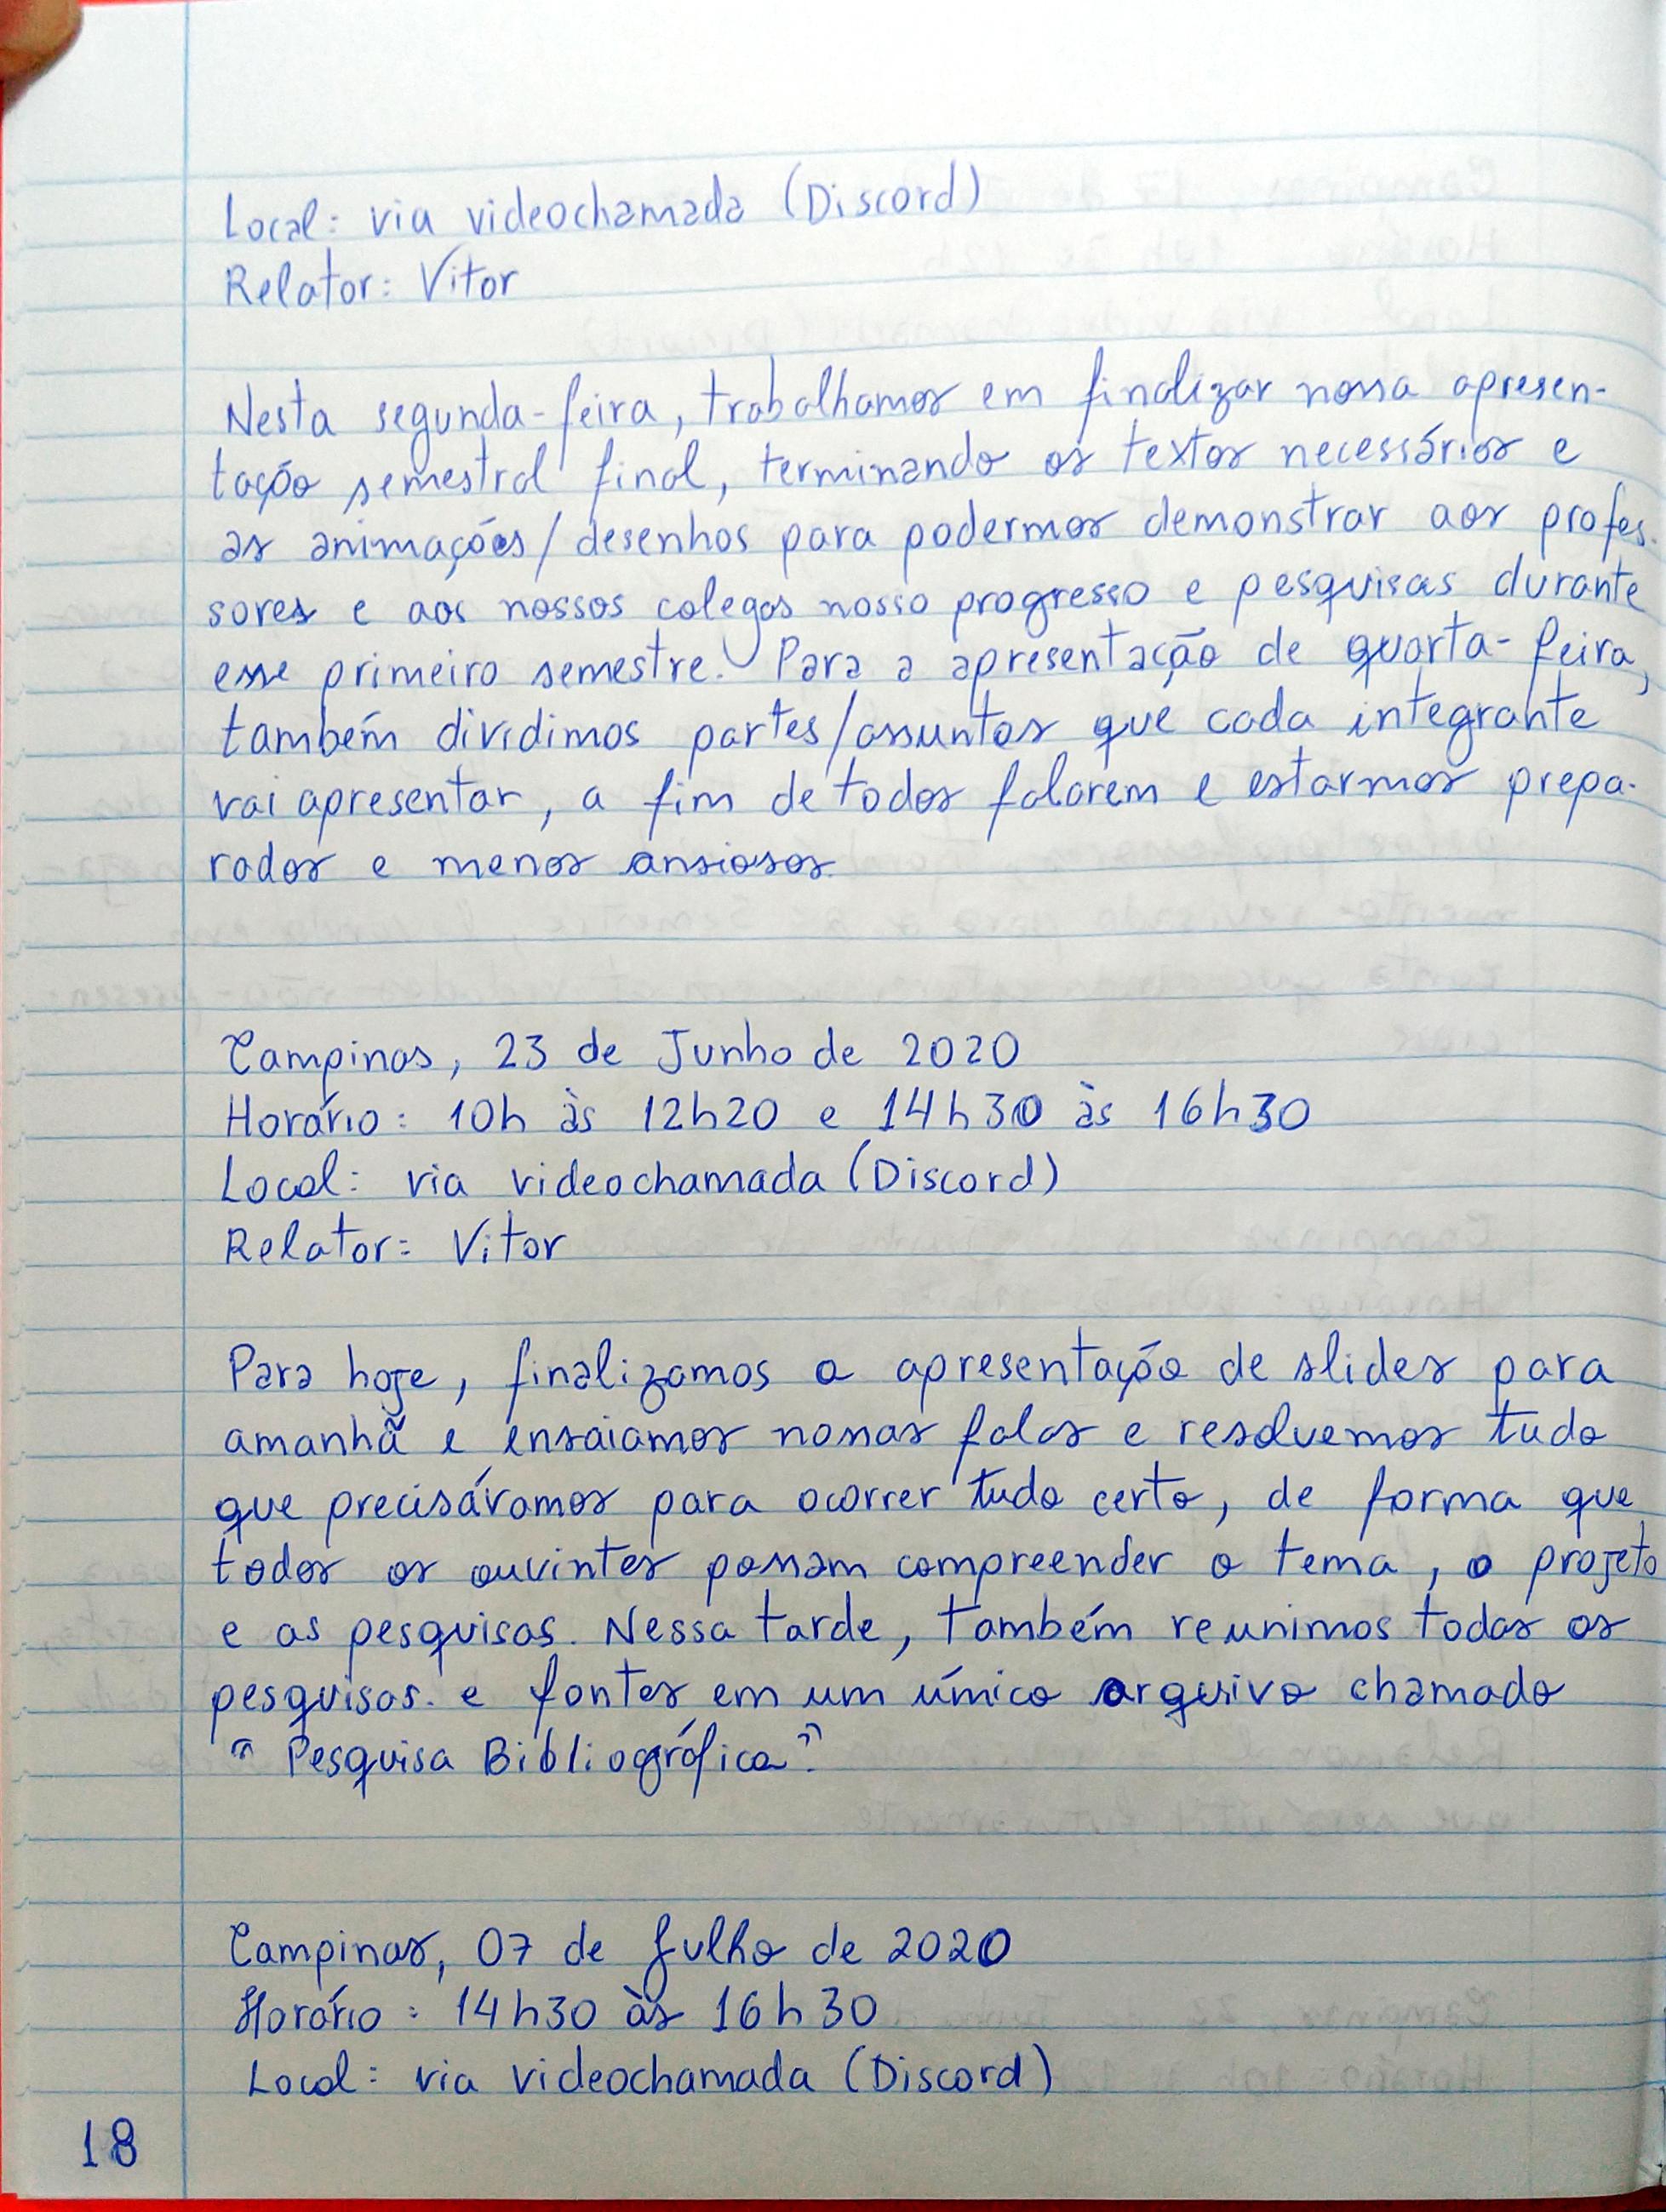 Local: via videochamada (Discord)
Relator: Vitor
Nesta segunda-feira, trabalhamos em finalizar nossa apresen-
tação semestral final, terminando os textos necessários e
as animações/desenhos para podermos demonstrar aos profes-
sores e aos nossos colegas nosso progresso e pesquisas durante
esse primeiro semestre. Para a apresentação de quarta-feira,
também dividimos partes/assuntos que cada integrante
vai apresentar, a fim de todos falarem e estarmos prepa-
rados e menos ansiosos.
Campinas, 23 de Junho de 2020
Horário: 10h às 12h20 e 14h30 às 16h30
Local: via videochamada (Discord)
Relator: Vitor
Para hoje, finalizamos a apresentação de slides para
amanhã e ensaiamos nossas falas e resolvemos tudo
que precisávamos para ocorrer tudo certo, de forma que
todos os ouvintes possam compreender o tema, o projeto
e as pesquisas. Nessa tarde, também reunimos todas as
pesquisas e fontes em um único arquivo chamado
"Pesquisa Bibliográfica".
Campinas, 07 de Julho de 2020
Horário: 14h30 às 16h30
Local: via videochamada (Discord)
18